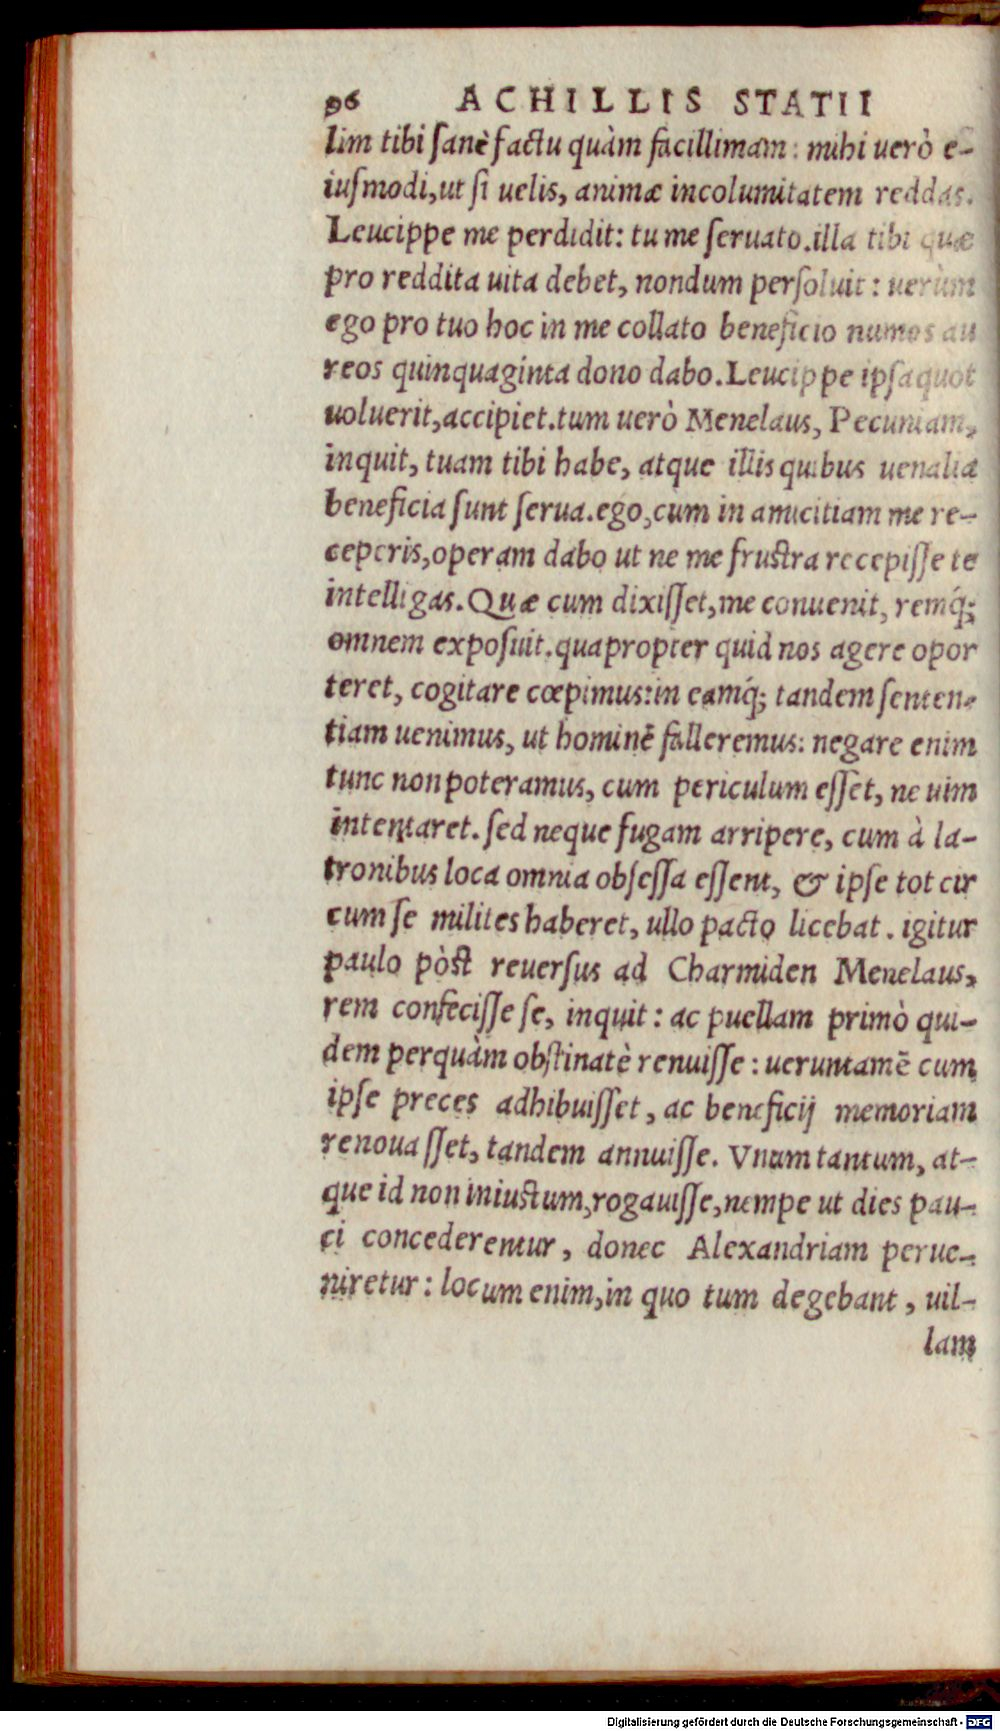 96 ACHILLIS STATII
lim tibi sanè factu quàm facillimam: mihi uerò e-
iusmodi, ut si uelis, animæ incolumitatem reddas.
Leucippe me perdidit: tu me seruato. illa tibi quæ
pro reddita uita debet, nondum persoluit: uerùm
ego pro tuo hoc in me collato beneficio numos au
reos quinquaginta dono dabo. Leucippe ipsa quot
uoluerit, accipiet. tum uerò Menelaus, Pecuniam,
inquit, tuam tibi habe, atque illis quibus uenalia
beneficia sunt serua. ego, cum in amicitiam me re-
ceperis, operam dabo ut ne me frustra recepisse te
intelligas. Quæ cum dixisset, me conuenit, remq́;
omnem exposuit. quapropter quid nos agere opor
teret, cogitare cœpimus: in eamq́; tandem senten-
tiam uenimus, ut hominē falleremus: negare enim
tunc non poteramus, cum periculum esset, ne uim
intentaret. sed neque fugam arripere, cum à la-
tronibus loca omnia obsessa essent, & ipse tot cir
cum se milites haberet, ullo pacto licebat. igitur
paulo pòst reuersus ad Charmiden Menelaus,
rem confecisse se, inquit: ac puellam primò qui-
dem perquàm obstinatè renuisse: ueruntamē cum
ipse preces adhibuisset, ac beneficij memoriam
renouasset, tandem annuisse. Vnum tantum, at-
que id non iniustum, rogauisse, nempe ut dies pau-
ci concederentur, donec Alexandriam perue-
niretur: locum enim, in quo tum degebant, uil-
lam
Digitalisierung gefördert durch die Deutsche Forschungsgemeinschaft - DFG